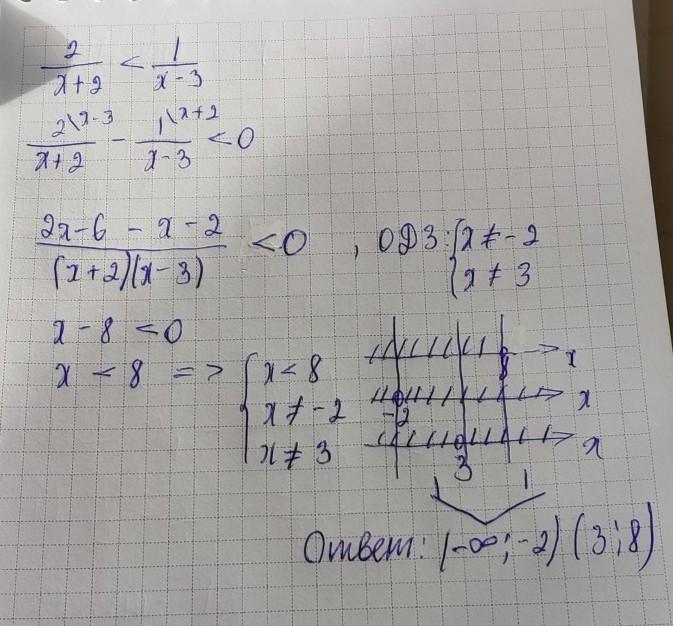 2/(x+2) < 1/(x-3)
2\x-3/(x+2) - 1\x+2/(x-3) < 0
(2x-6 - x - 2)/((x+2)(x-3)) < 0 , ОДЗ: { x ≠ -2
x ≠ 3
x - 8 < 0
x < 8 => { x < 8
x ≠ -2
x ≠ 3
8 x
-2 x
3 x
Ответ: (-∞; -2) (3; 8)